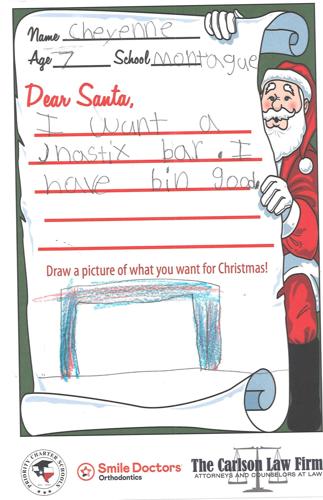 Name cheyenne
Age 7 School montague
Dear Santa,
I want a
Jnastix bar. I
have bin good.
Draw a picture of what you want for Christmas!
PRIORITY CHARTER SCHOOLS
Smile Doctors
Orthodontics
The Carlson Law Firm
ATTORNEYS AND COUNSELORS AT LAW